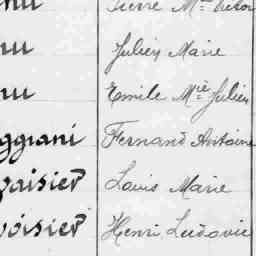 nu Pierre M^in Victor
nu Julien Marie
nu Emile M^ie Julien
ggiani Fernand Antoine
zaisier Louis Marie
voisier Henri Ludovic